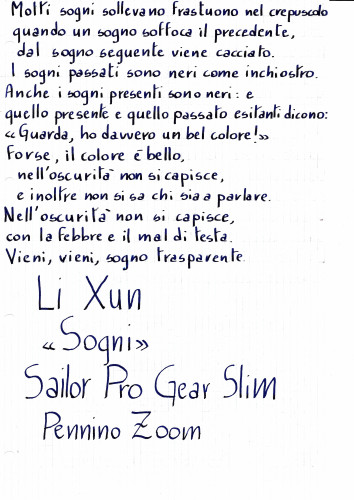 Molti sogni sollevano frastuono nel crepuscolo
quando un sogno soffoca il precedente,
dal sogno seguente viene cacciato.
I sogni passati sono neri come inchiostro.
Anche i sogni presenti sono neri: e
quello presente e quello passato esitanti dicono:
«Guarda, ho davvero un bel colore!»
Forse, il colore è bello,
nell'oscurità non si capisce,
e inoltre non si sa chi sia a parlare.
Nell'oscurità non si capisce,
con la febbre e il mal di testa.
Vieni, vieni, sogno trasparente.
Li Xun
«Sogni»
Sailor Pro Gear Slim
Pennino Zoom